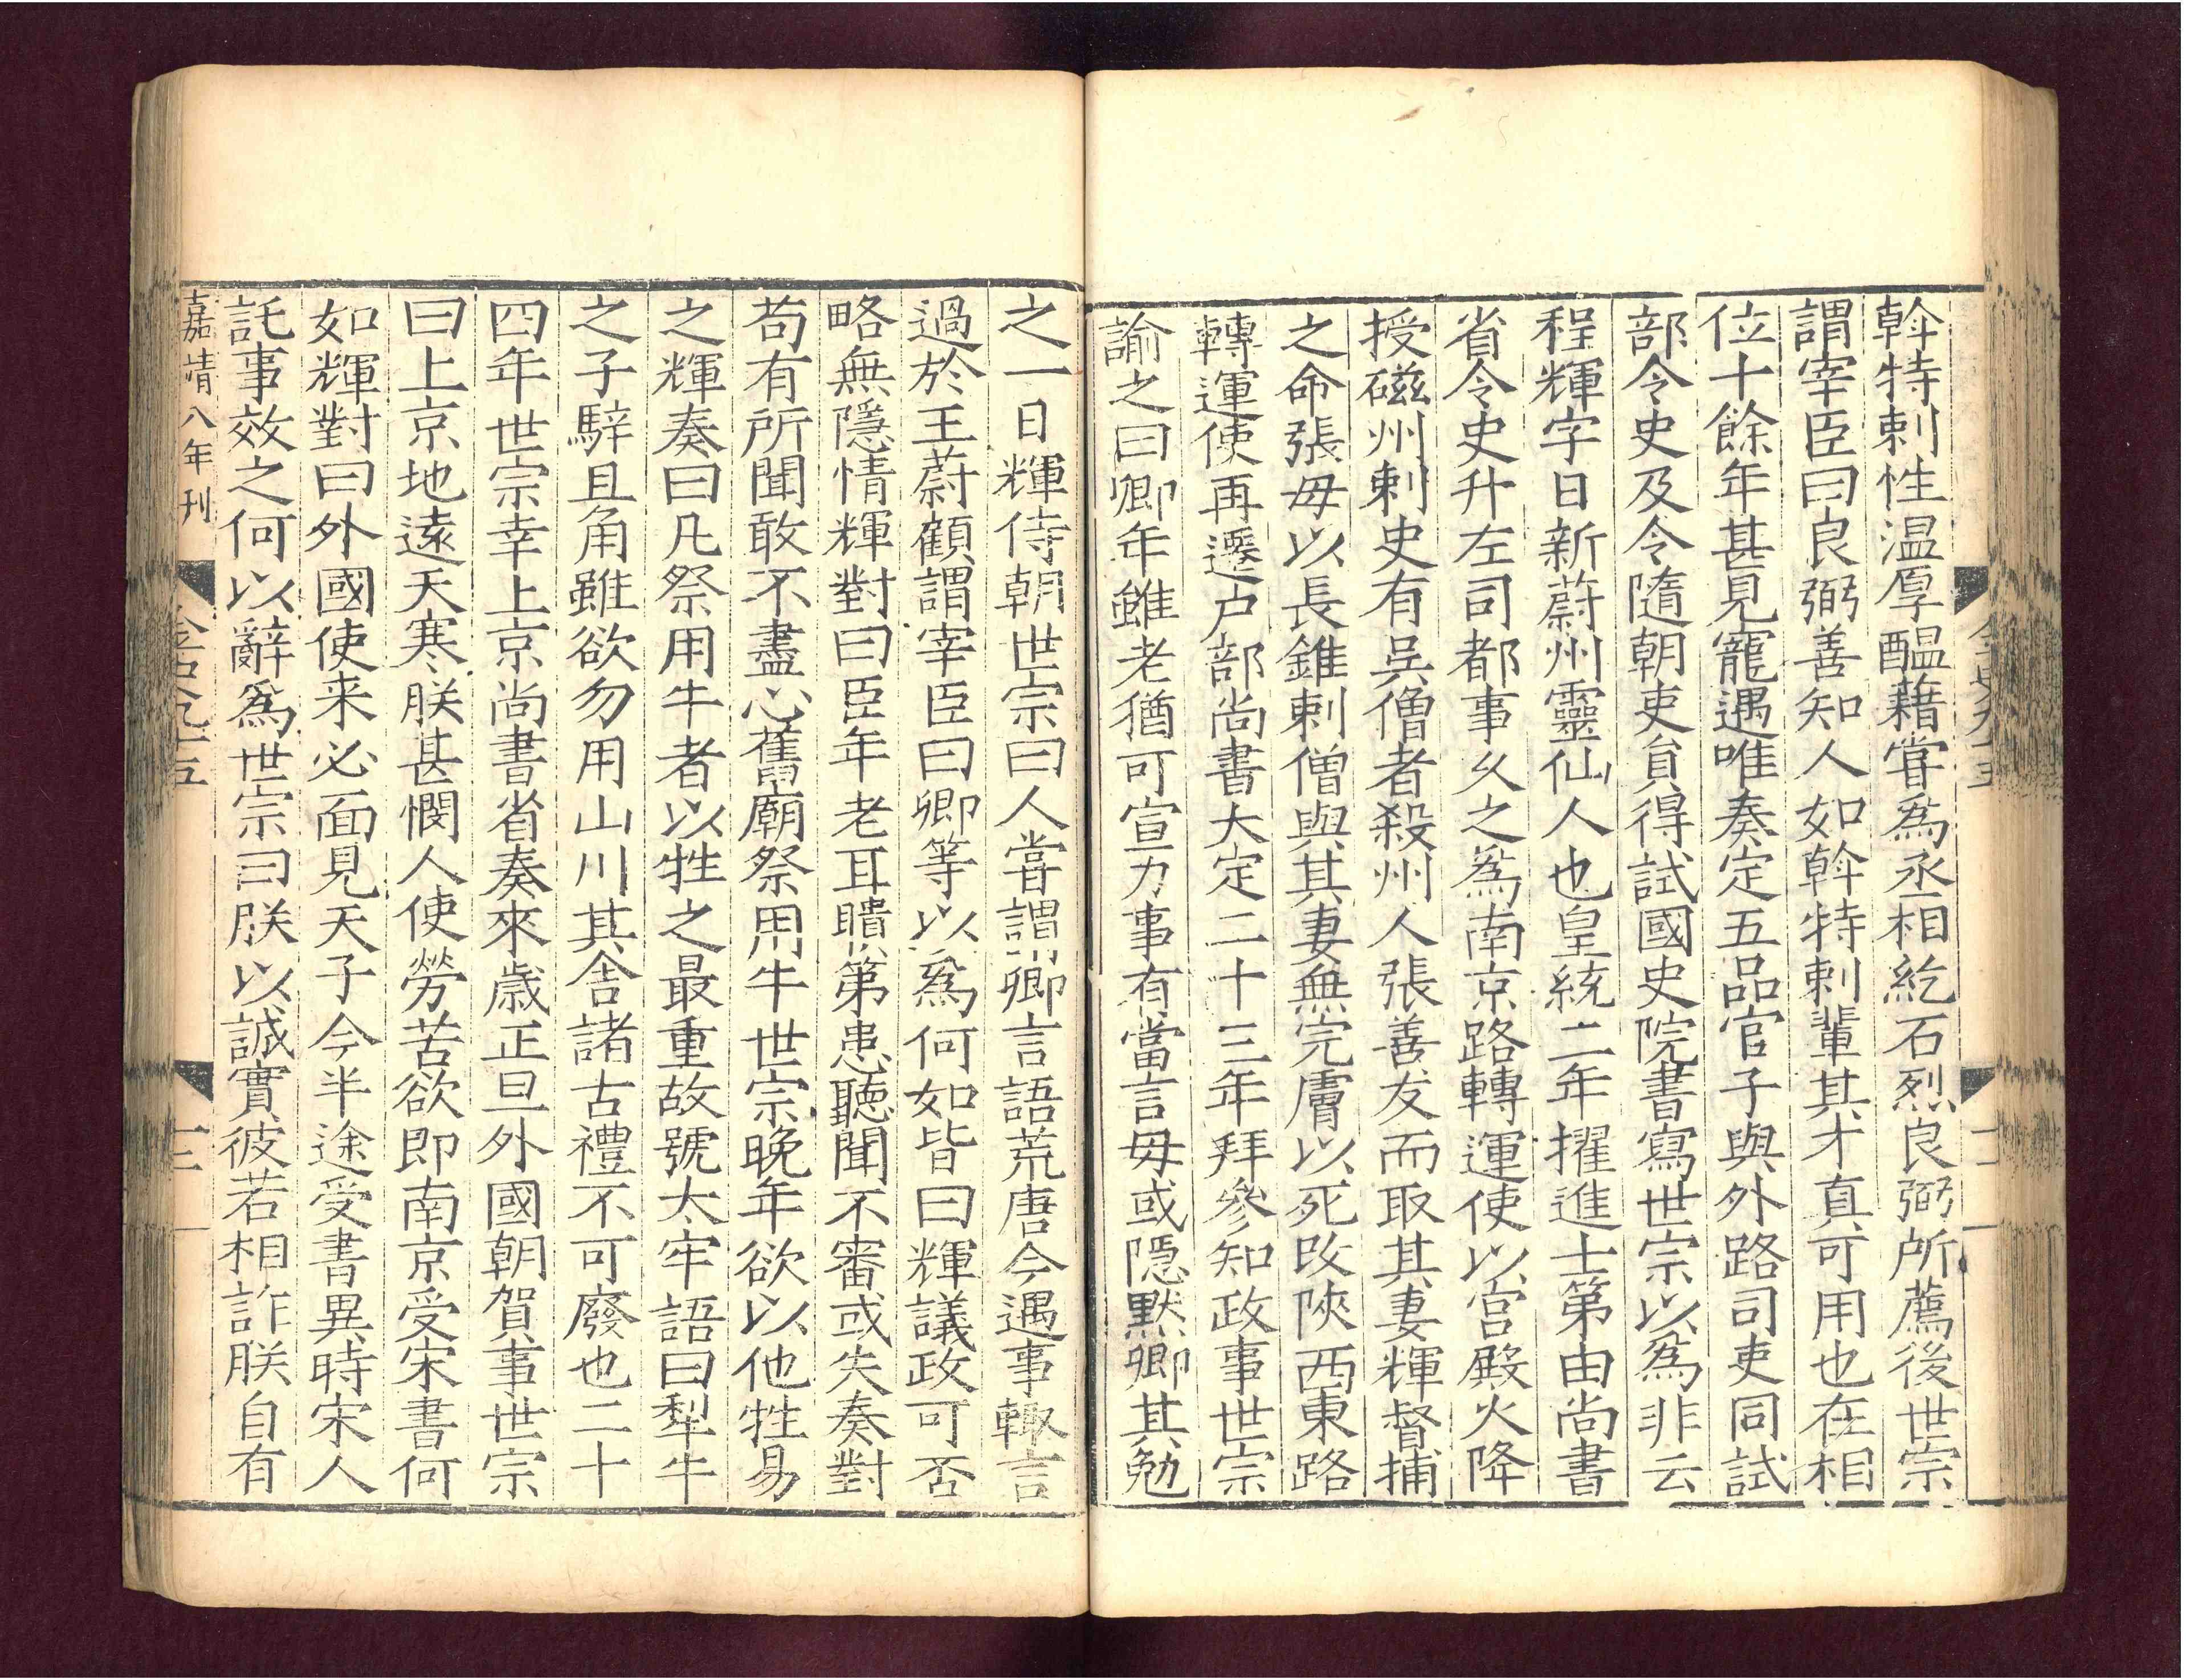 斡特剌性温厚醖藉嘗爲丞相紇石烈良弼所薦後世宗
謂宰臣曰良弼善知人如斡特剌輩其才真可用也在相
位十餘年甚見寵遇唯奏定五品官子與外路司吏同試
部令史及令隨朝吏貟得試國史院書寫世宗以爲非云
程輝字日新蔚州靈仙人也皇統二年擢進士第由尚書
省令史升左司都事乆之爲南京路轉運使以宮殿火降
授磁州刺史有吳僧者殺州人張善友而取其妻輝督捕
之命張母以長錐刺僧與其妻無完膚以死改陝西東路
轉運使再遷户部尚書大定二十三年拜參知政事世宗
諭之曰卿年雖老猶可宣力事有當言毋或隠默卿其勉
之一日輝侍朝世宗曰人嘗謂卿言語荒唐今遇事輒言
過於王蔚顧謂宰臣曰卿等以爲何如皆曰輝議政可否
略無隱情輝對曰臣年老耳聵第患聽聞不審或失奏對
苟有所聞敢不盡心舊廟祭用牛世宗晚年欲以他牲易
之輝奏曰凡祭用牛者以牲之最重故號太牢語曰犁牛
之子騂且角雖欲勿用山川其舍諸古禮不可廢也二十
四年世宗幸上京尚書省奏來歲正旦外國朝賀事世宗
曰上京地遠天寒朕甚憫人使勞苦欲即南京受宋書何
如輝對曰外國使来必面見天子今半途受書異時宋人
託事效之何以辭爲世宗曰朕以誠實彼若相詐朕自有
嘉靖八年刊
金史九十五
十三